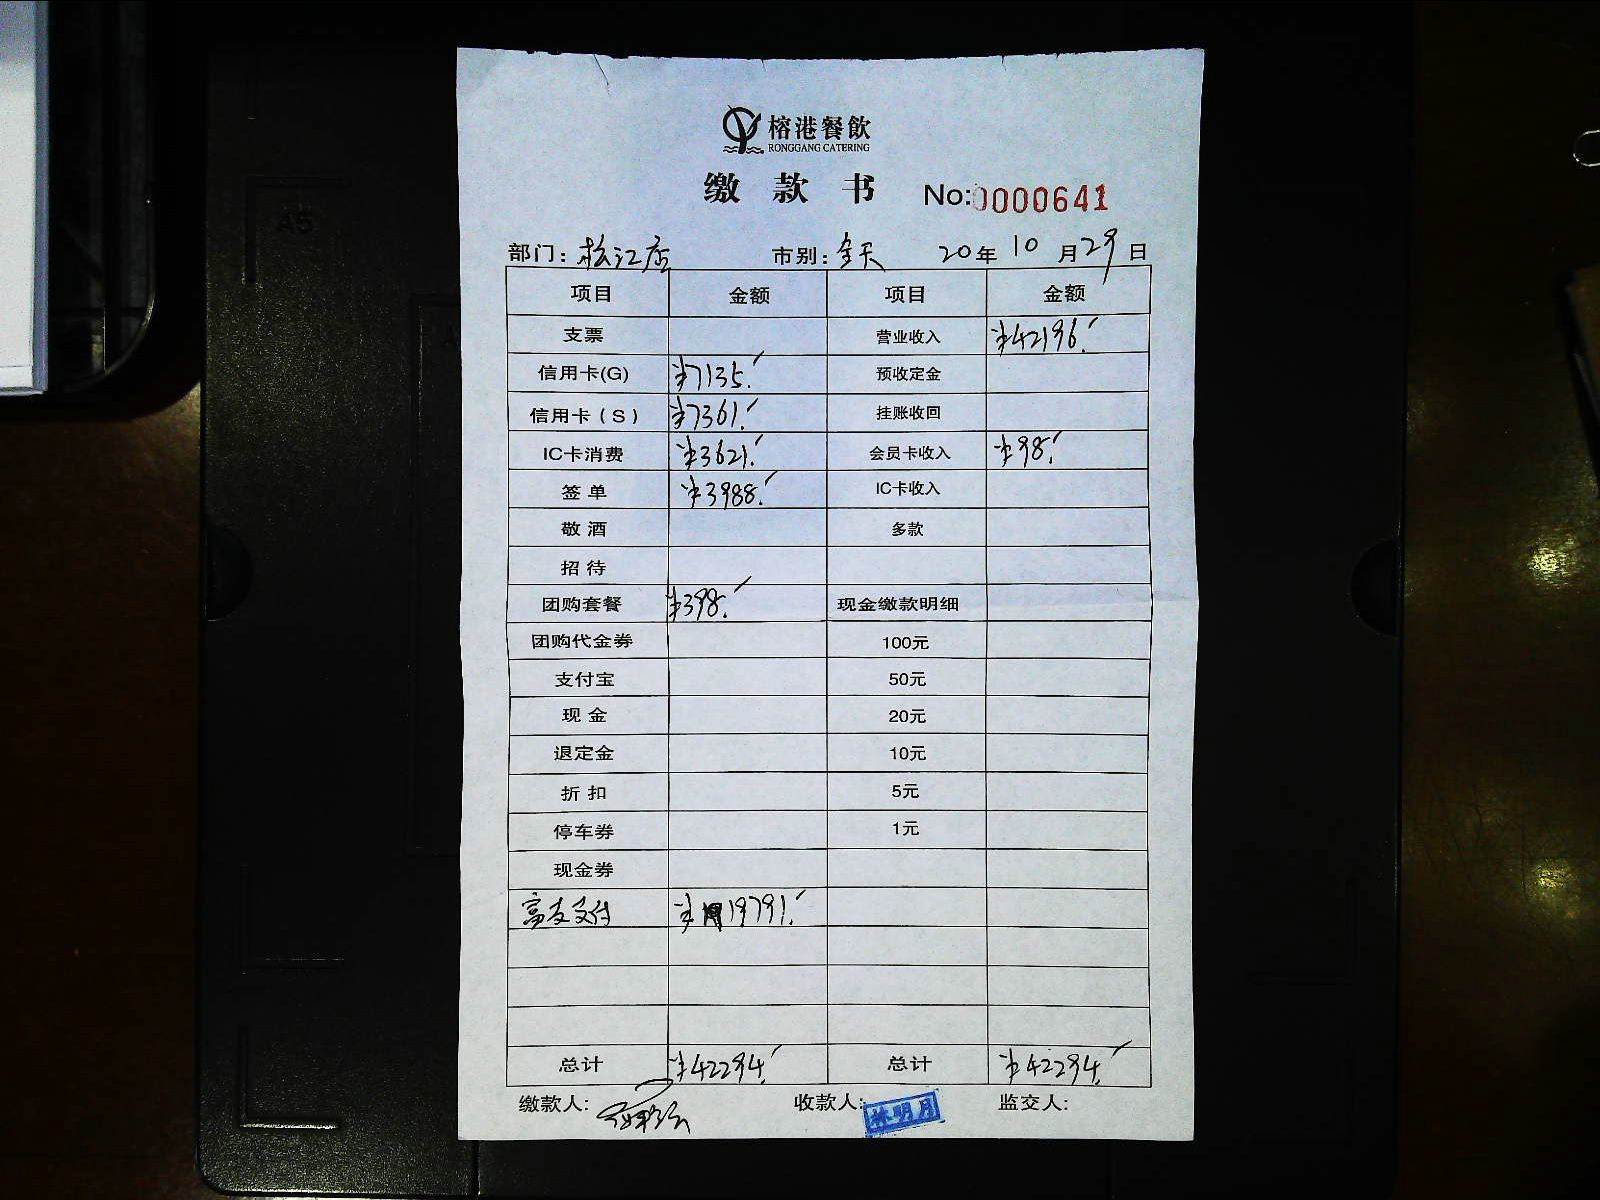 榕港餐飲
RONGGANG CATERING
缴款书 No:0000641
部门：松江店 市别：全天 20年10月29日
项目 金额 项目 金额
支票 营业收入 ¥42196.
信用卡(G) ¥7135. 预收定金
信用卡（S） ¥7361. 挂账收回
IC卡消费 ¥3621. 会员卡收入 ¥98.
签单 ¥3988. IC卡收入
敬酒 多款
招待
团购套餐 ¥398. 现金缴款明细
团购代金券 100元
支付宝 50元
现金 20元
退定金 10元
折扣 5元
停车券 1元
现金券
富友支付 ¥19791.
总计 ¥42294. 总计 ¥42294.
缴款人: 收款人: 林明月 监交人:
A5